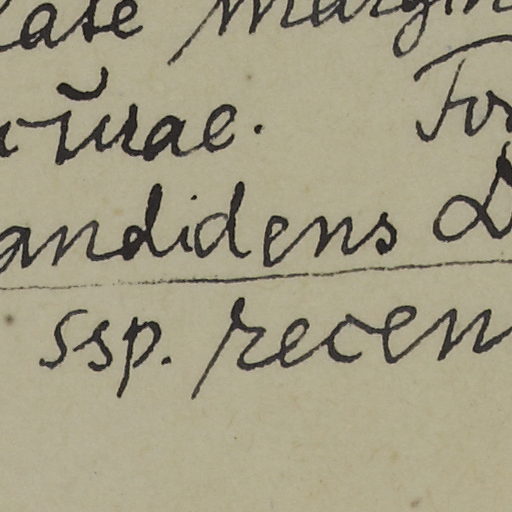 late margin
turae. For
andidens D
ssp. recen